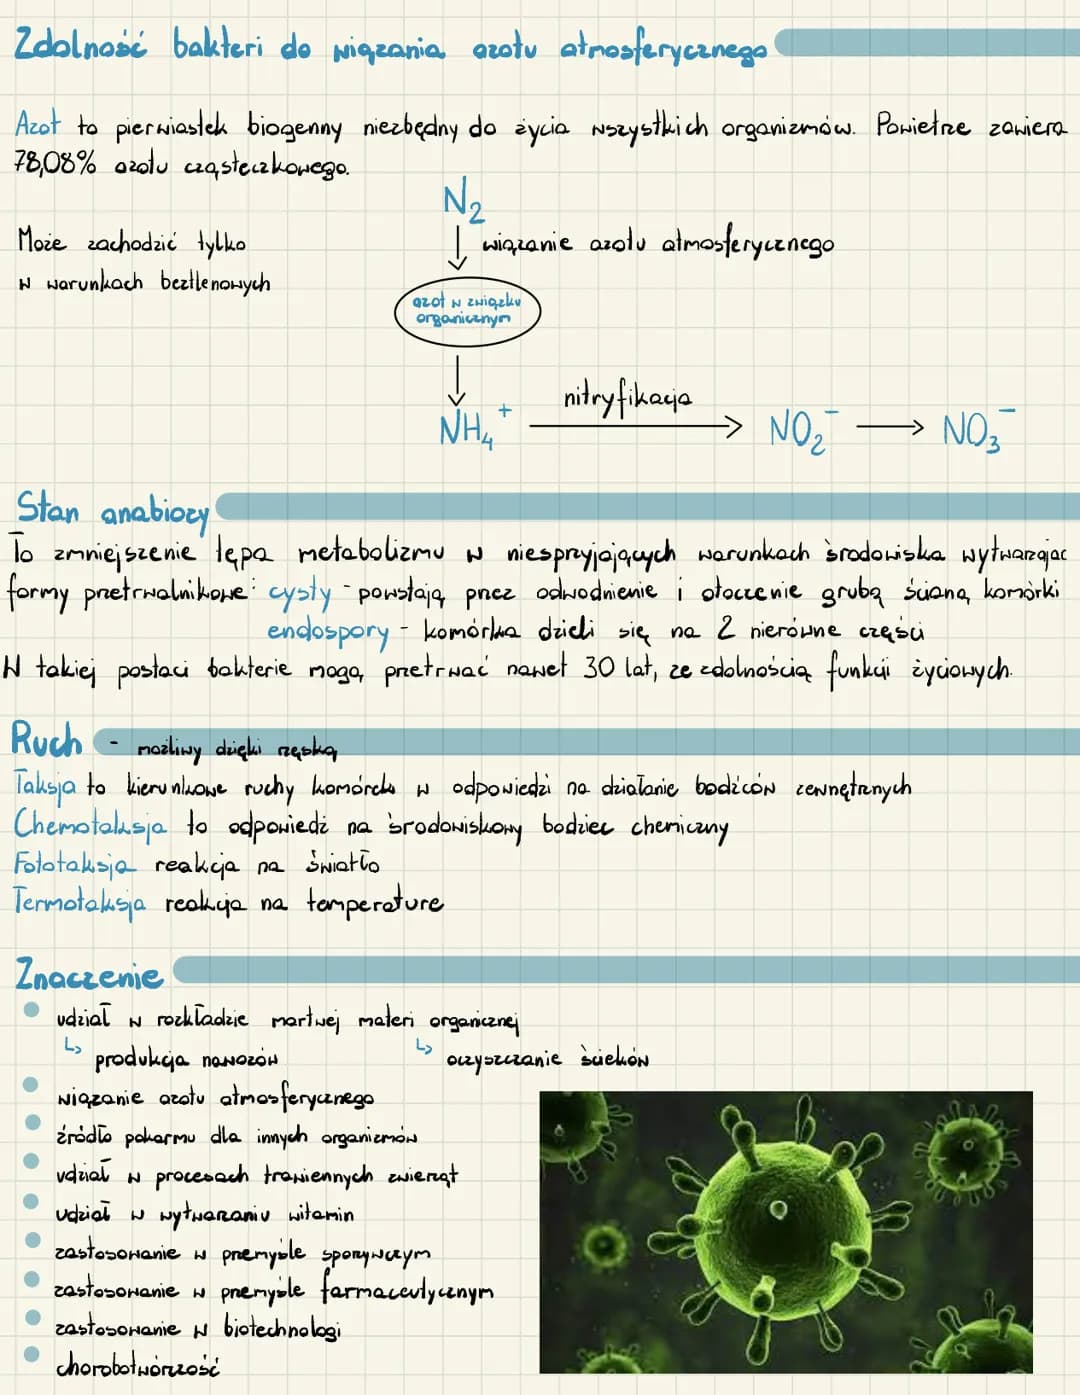 Zdolność bakteri do wiązania azotu atmosferycznego
Azot to pierwiastek biogenny niezbędny do życia wszystkich organizmów. Powietrze zawiera
78,08% azotu cząsteczkowego.
N₂
Może zachodzić tylko
wiązanie azotu atmosferycznego
w warunkach beztlenowych
azot w związku
organicznym
nitryfikacja
NH₄⁺ NO₂⁻ NO₃⁻
Stan anabiozy
To zmniejszenie tępa metabolizmu w niesprzyjających warunkach środowiska wytwarzając
formy przetrwalnikowe: cysty - powstają przez odwodnienie i otoczenie grubą ścianą komórki
endospory - komórka dzieli się na 2 nierówne części
W takiej postaci bakterie mogą przetrwać nawet 30 lat, ze zdolnością funkcji życiowych.
Ruch - możliwy dzięki rzęską
Taksja to kierunkowe ruchy komórek w odpowiedzi na działanie bodźców zewnętrznych
Chemotaksja to odpowiedź na środowiskowy bodziec chemiczny
Fototaksja reakcja na światło
Termotaksja reakcja na temperature
Znaczenie
udział w rozkładzie martwej materi organicznej
↳ produkcja nawozów ↳ oczyszczanie ścieków
wiązanie azotu atmosferycznego
źródło pokarmu dla innych organizmów
udział w procesach trawiennych zwierząt
udział w wytwarzaniu witamin
zastosowanie w przemyśle spożywczym
zastosowanie w przemyśle farmaceutycznym
zastosowanie w biotechnologi
chorobotwórczość